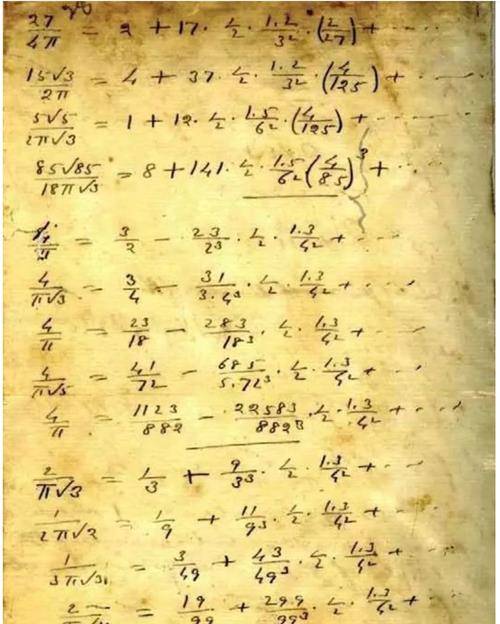 27/4π = 2 + 17 · 1/2 · 1.2/3² · (2/27) + ····
15√3/2π = 4 + 37 · 1/2 · 1.2/3² · (4/125) + ····
5√5/2π√3 = 1 + 12 · 1/2 · 1.5/6² · (4/125) + ····
85√85/18π√3 = 8 + 141 · 1/2 · 1.5/6² (4/85)³ + ···
4/π = 3/2 − 23/2³ · 1/2 · 1.3/4² + ····
4/π√3 = 3/4 − 31/3.4³ · 1/2 · 1.3/4² + ····
4/π = 23/18 − 283/18³ · 1/2 · 1.3/4² + ····
4/π√5 = 41/72 − 685/5.72³ · 1/2 · 1.3/4² + ····
4/π = 1123/882 − 22583/882³ · 1/2 · 1.3/4² + ····
2/π√3 = 1/3 + 9/3³ · 1/2 · 1.3/4² + ····
1/2π√2 = 1/9 + 11/9³ · 1/2 · 1.3/4² + ····
1/3π√3 = 3/49 + 43/49³ · 1/2 · 1.3/4² + ····
= 19/99 + 299/99³ · 1/2 · 1.3/4² + ····